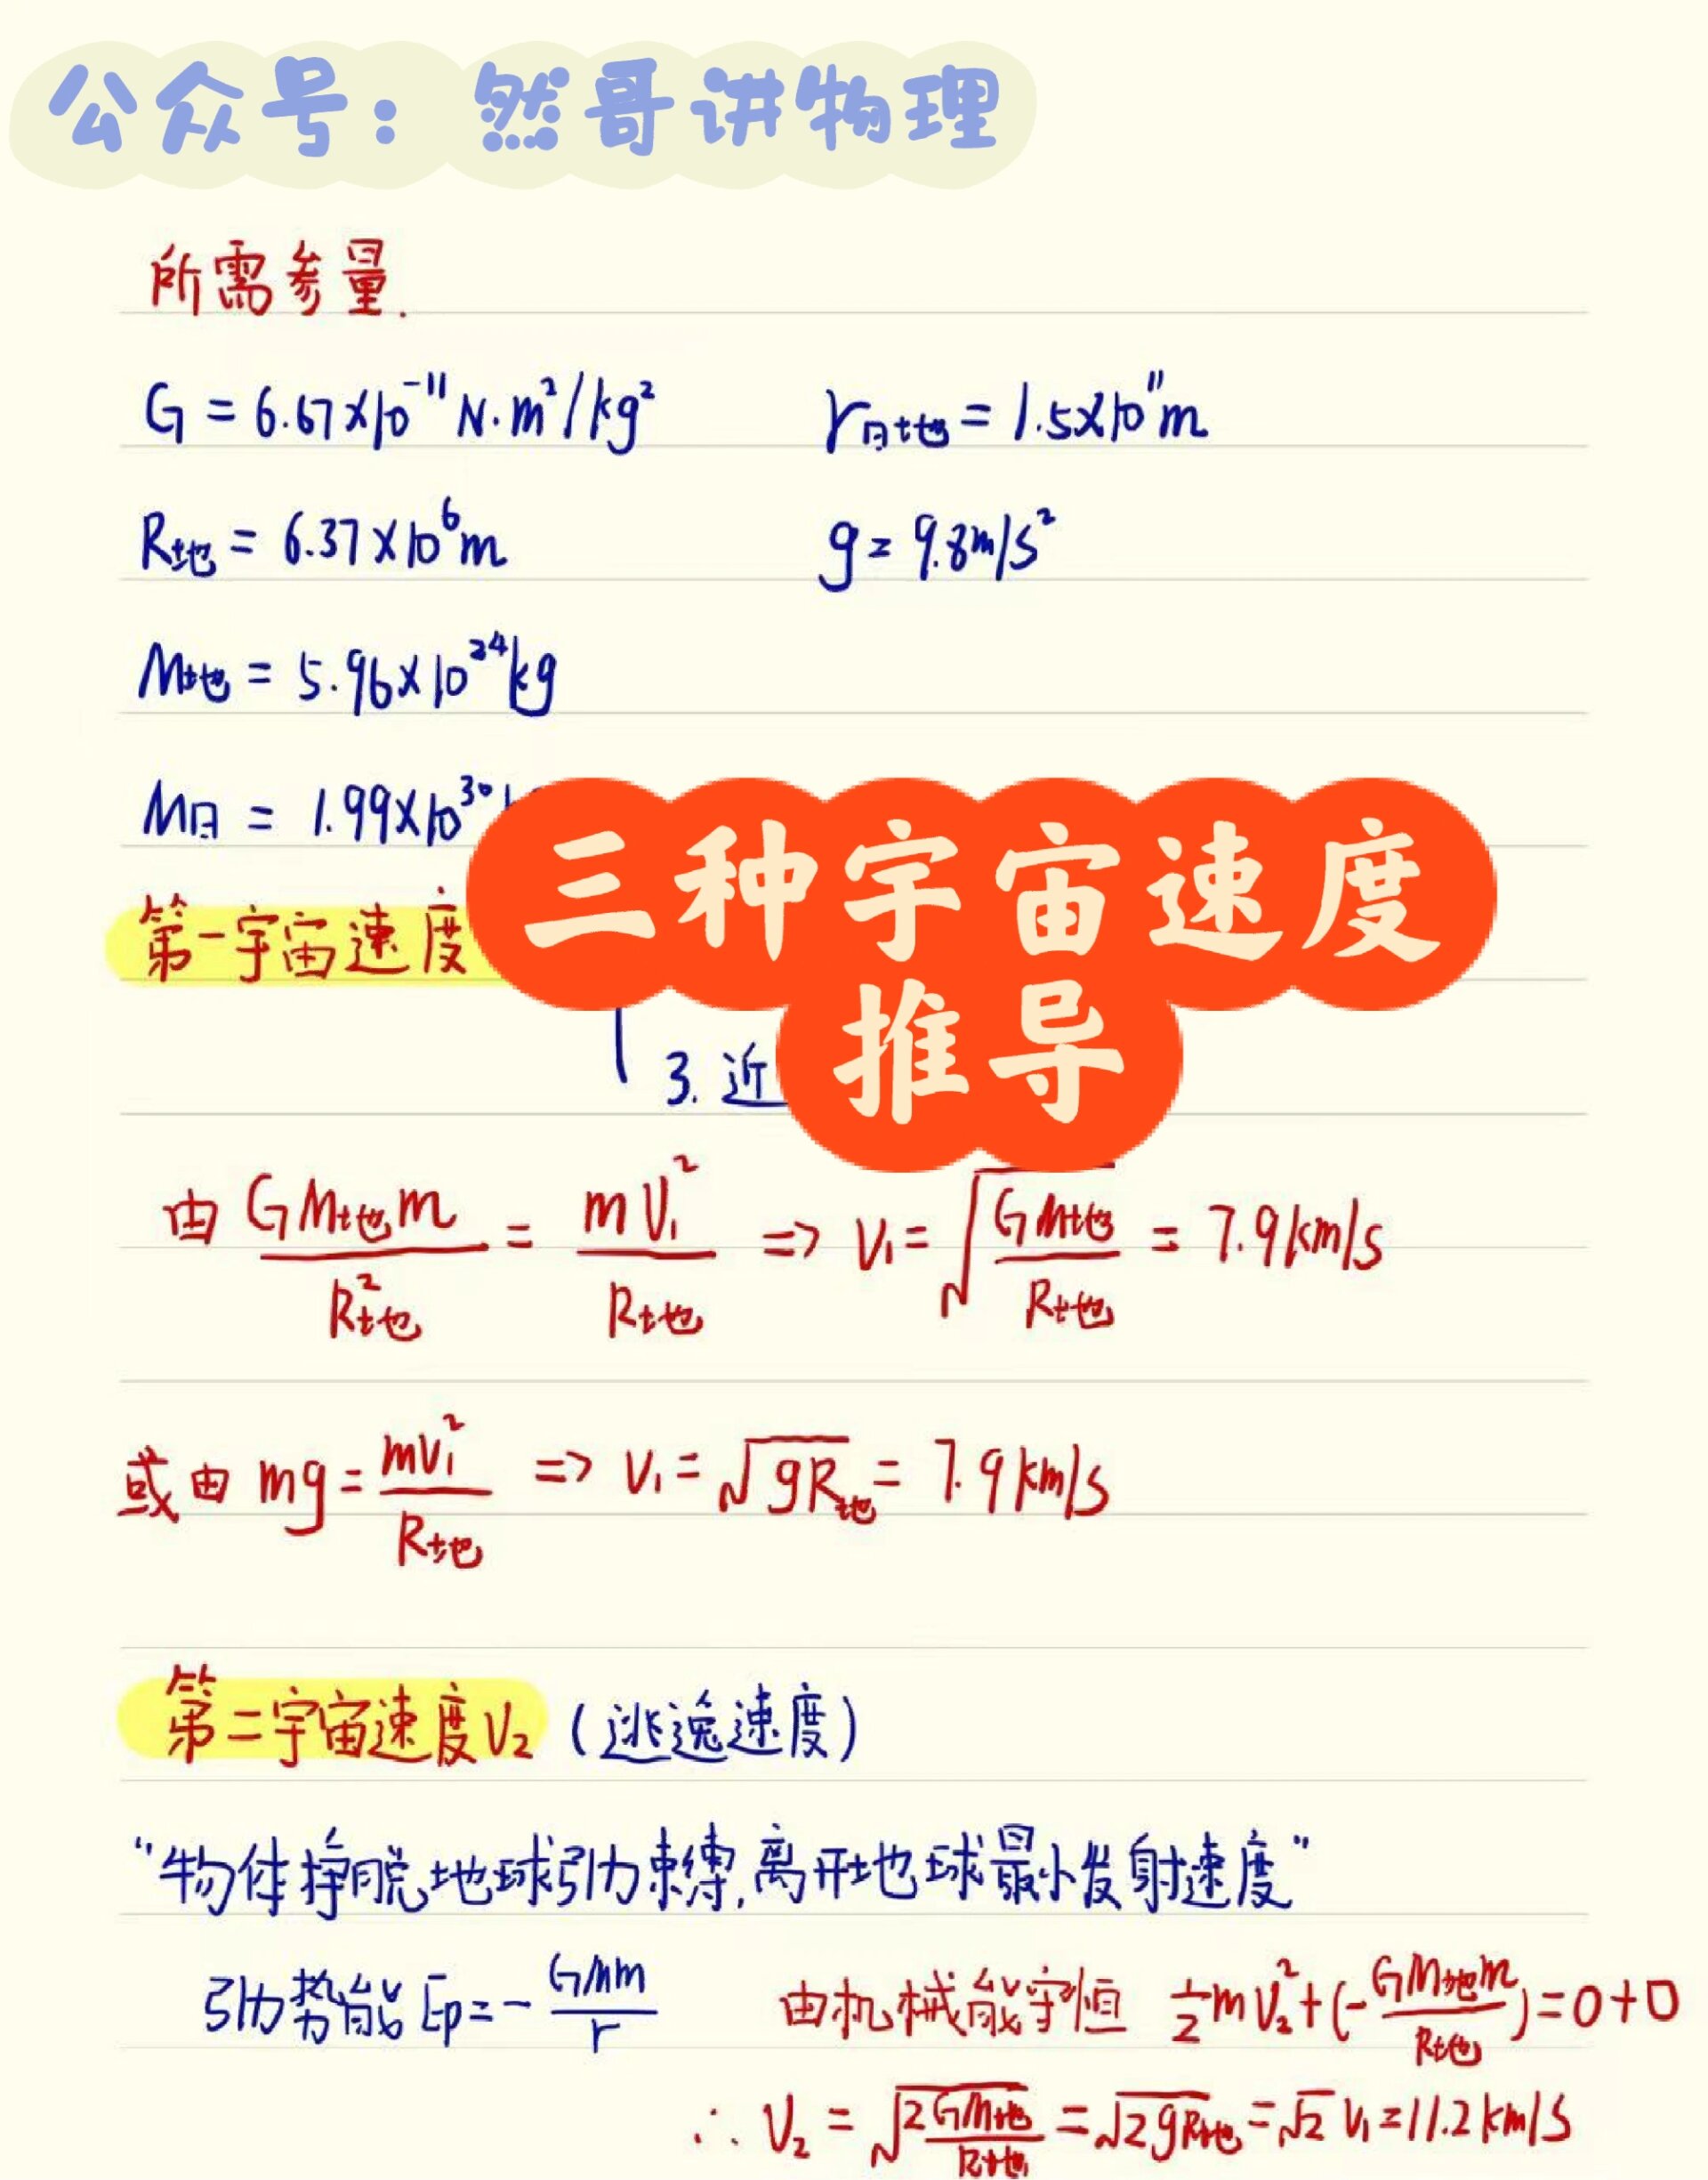 公众号：然哥讲物理
所需参量.
G = 6.67×10⁻¹¹ N·m²/kg² r日地 = 1.5×10¹¹m
R地 = 6.37×10⁶m g = 9.8m/s²
M地 = 5.96×10²⁴kg
M日 = 1.99×10³⁰
三种宇宙速度
推导
第一宇宙速度
3. 近
由 GM地m/R地² = mV₁²/R地 => V₁ = √(GM地/R地) = 7.9km/s
或由 mg = mV₁²/R地 => V₁ = √gR地 = 7.9km/s
第二宇宙速度V₂ (逃逸速度)
“物体挣脱地球引力束缚,离开地球最小发射速度”
引力势能 Ep = - GMm/r 由机械能守恒 ½mV₂² + (-GM地m/R地) = 0+0
∴ V₂ = √(2GM地/R地) = √2gR地 = √2 V₁ = 11.2km/s